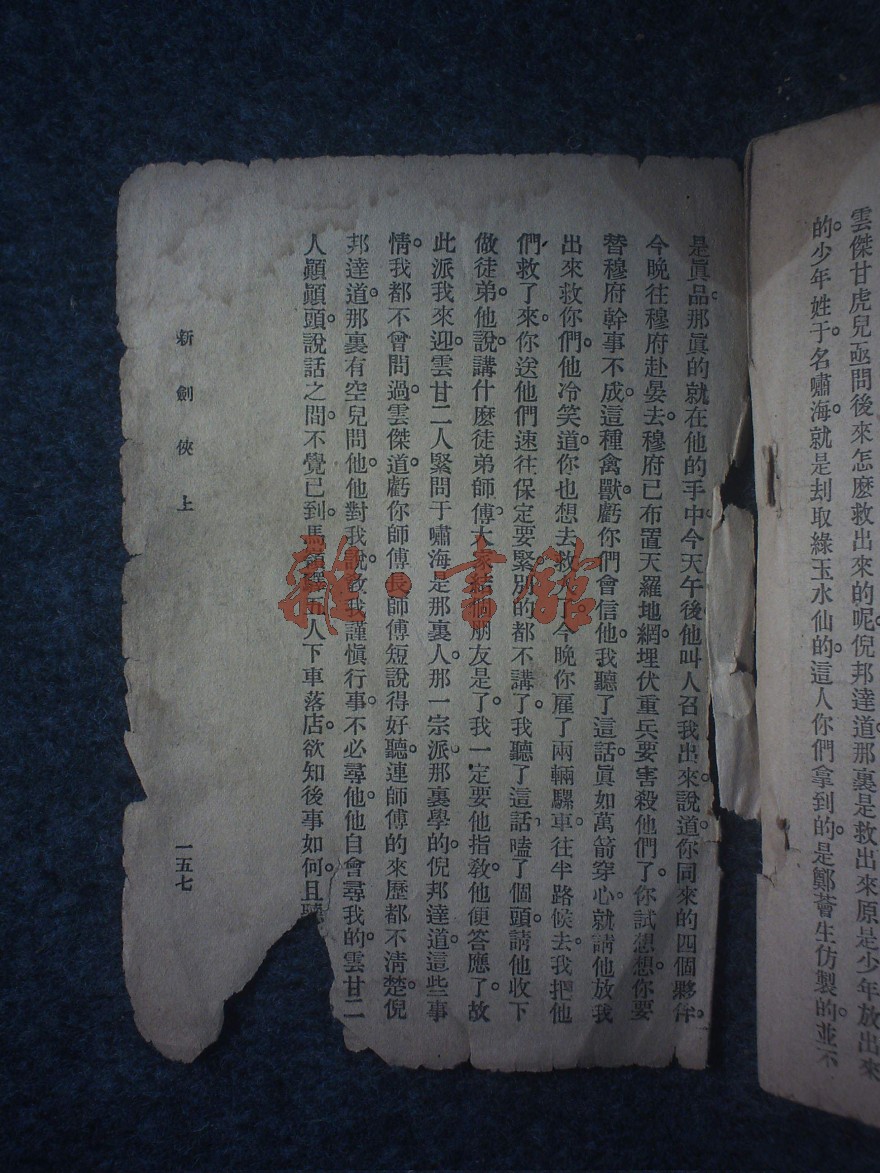 雲傑甘虎兒亟問後來怎麽救出來的呢。倪邦達道。那裏是救出來。原是少年放出來
的。少年姓于。名嘯海。就是刦取綠玉水仙的。這人你們拿到的。是鄭薈生仿製的。並不
是眞品。那眞的就在他的手中。今天午後他叫人召我出來。說道。你同來的四個夥伴。
今晚往穆府赴晏去。穆府已布置天羅地網。埋伏重兵。要害殺他們了。你試想想。你要
替穆府幹事不成。這種禽獸。虧你們會信他。我聽了這話。眞如萬箭穿心。就請他放我
出來救你們。他冷笑道。你也想去救人了。今晚你雇了兩輛騾車。往半路候去。我把他
們救了來。你送他們速往保定要緊。別的都不講了。我聽了這話。嗑了個頭。請他收下
做徒弟。他說講什麽徒弟師傅。大家結個朋友是了。我一定要他指教。他便答應了。故
此派我來迎。雲甘二人緊問于嘯海是那裏人。那一宗派。那裏學的。倪邦達道。這些事
情。我都不曾問過。雲傑道。虧你師傅長師傅短說得好聽。連師傅的來歷都不清楚。倪
邦達道。那裏有空兒問他。他對我說。教我謹愼行事。不必尋他。他自會尋我的。雲甘二
人顚顚頭。說話之間。不覺已到馬嶺驛。五人下車落店。欲知後事如何。且聽
新劍俠 上
一五七
雜·書館